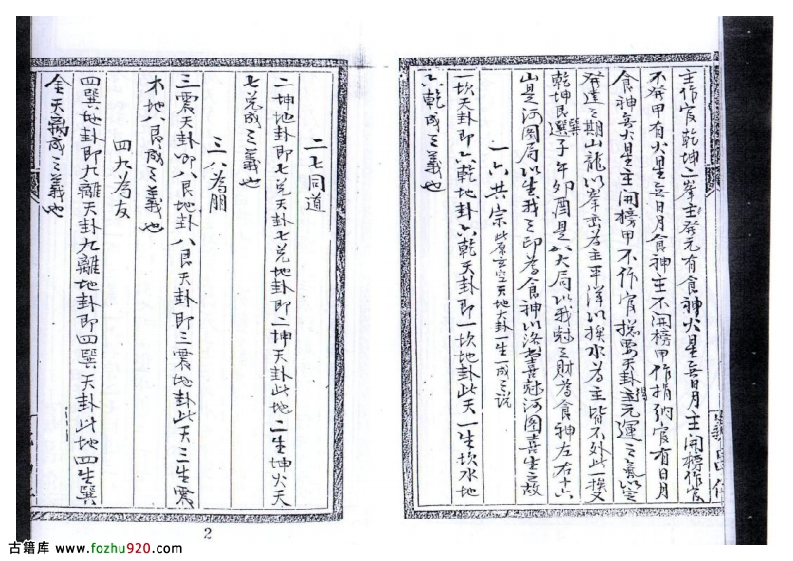 主作官乾坤二峯主發元有食神火星無日月主開榜作官
不發甲有火星無日月食神主不開榜甲作捐納官有日月
食神無火星主開榜甲不作官總要天卦主元運之氣以定
發達之期山龍以峯巒為主平洋以挨水為主皆不外此一挨
乾坤艮巽選子午卯酉是八大局以我尅之財為食神左右十六
山是河圖局以生我之印為食神以洛書喜尅河圖喜生之故
一六共宗 此原玄空天地大卦一生一成之説
一坎天卦即六乾地卦六乾天卦即一坎地卦此天一生坎水地
六乾成之義也
二七同道
二坤地卦即七兌天卦七兌地卦即二坤天卦此地二生坤火天
七兌成之義也
三八為朋
三震天卦即八艮地卦八艮天卦即三震地卦此天三生震
木地八艮成之義也
四九為友
四巽地卦即九離天卦九離地卦即四巽天卦此地四生巽
金天成之義也
2
古籍库 www.fozhu920.com